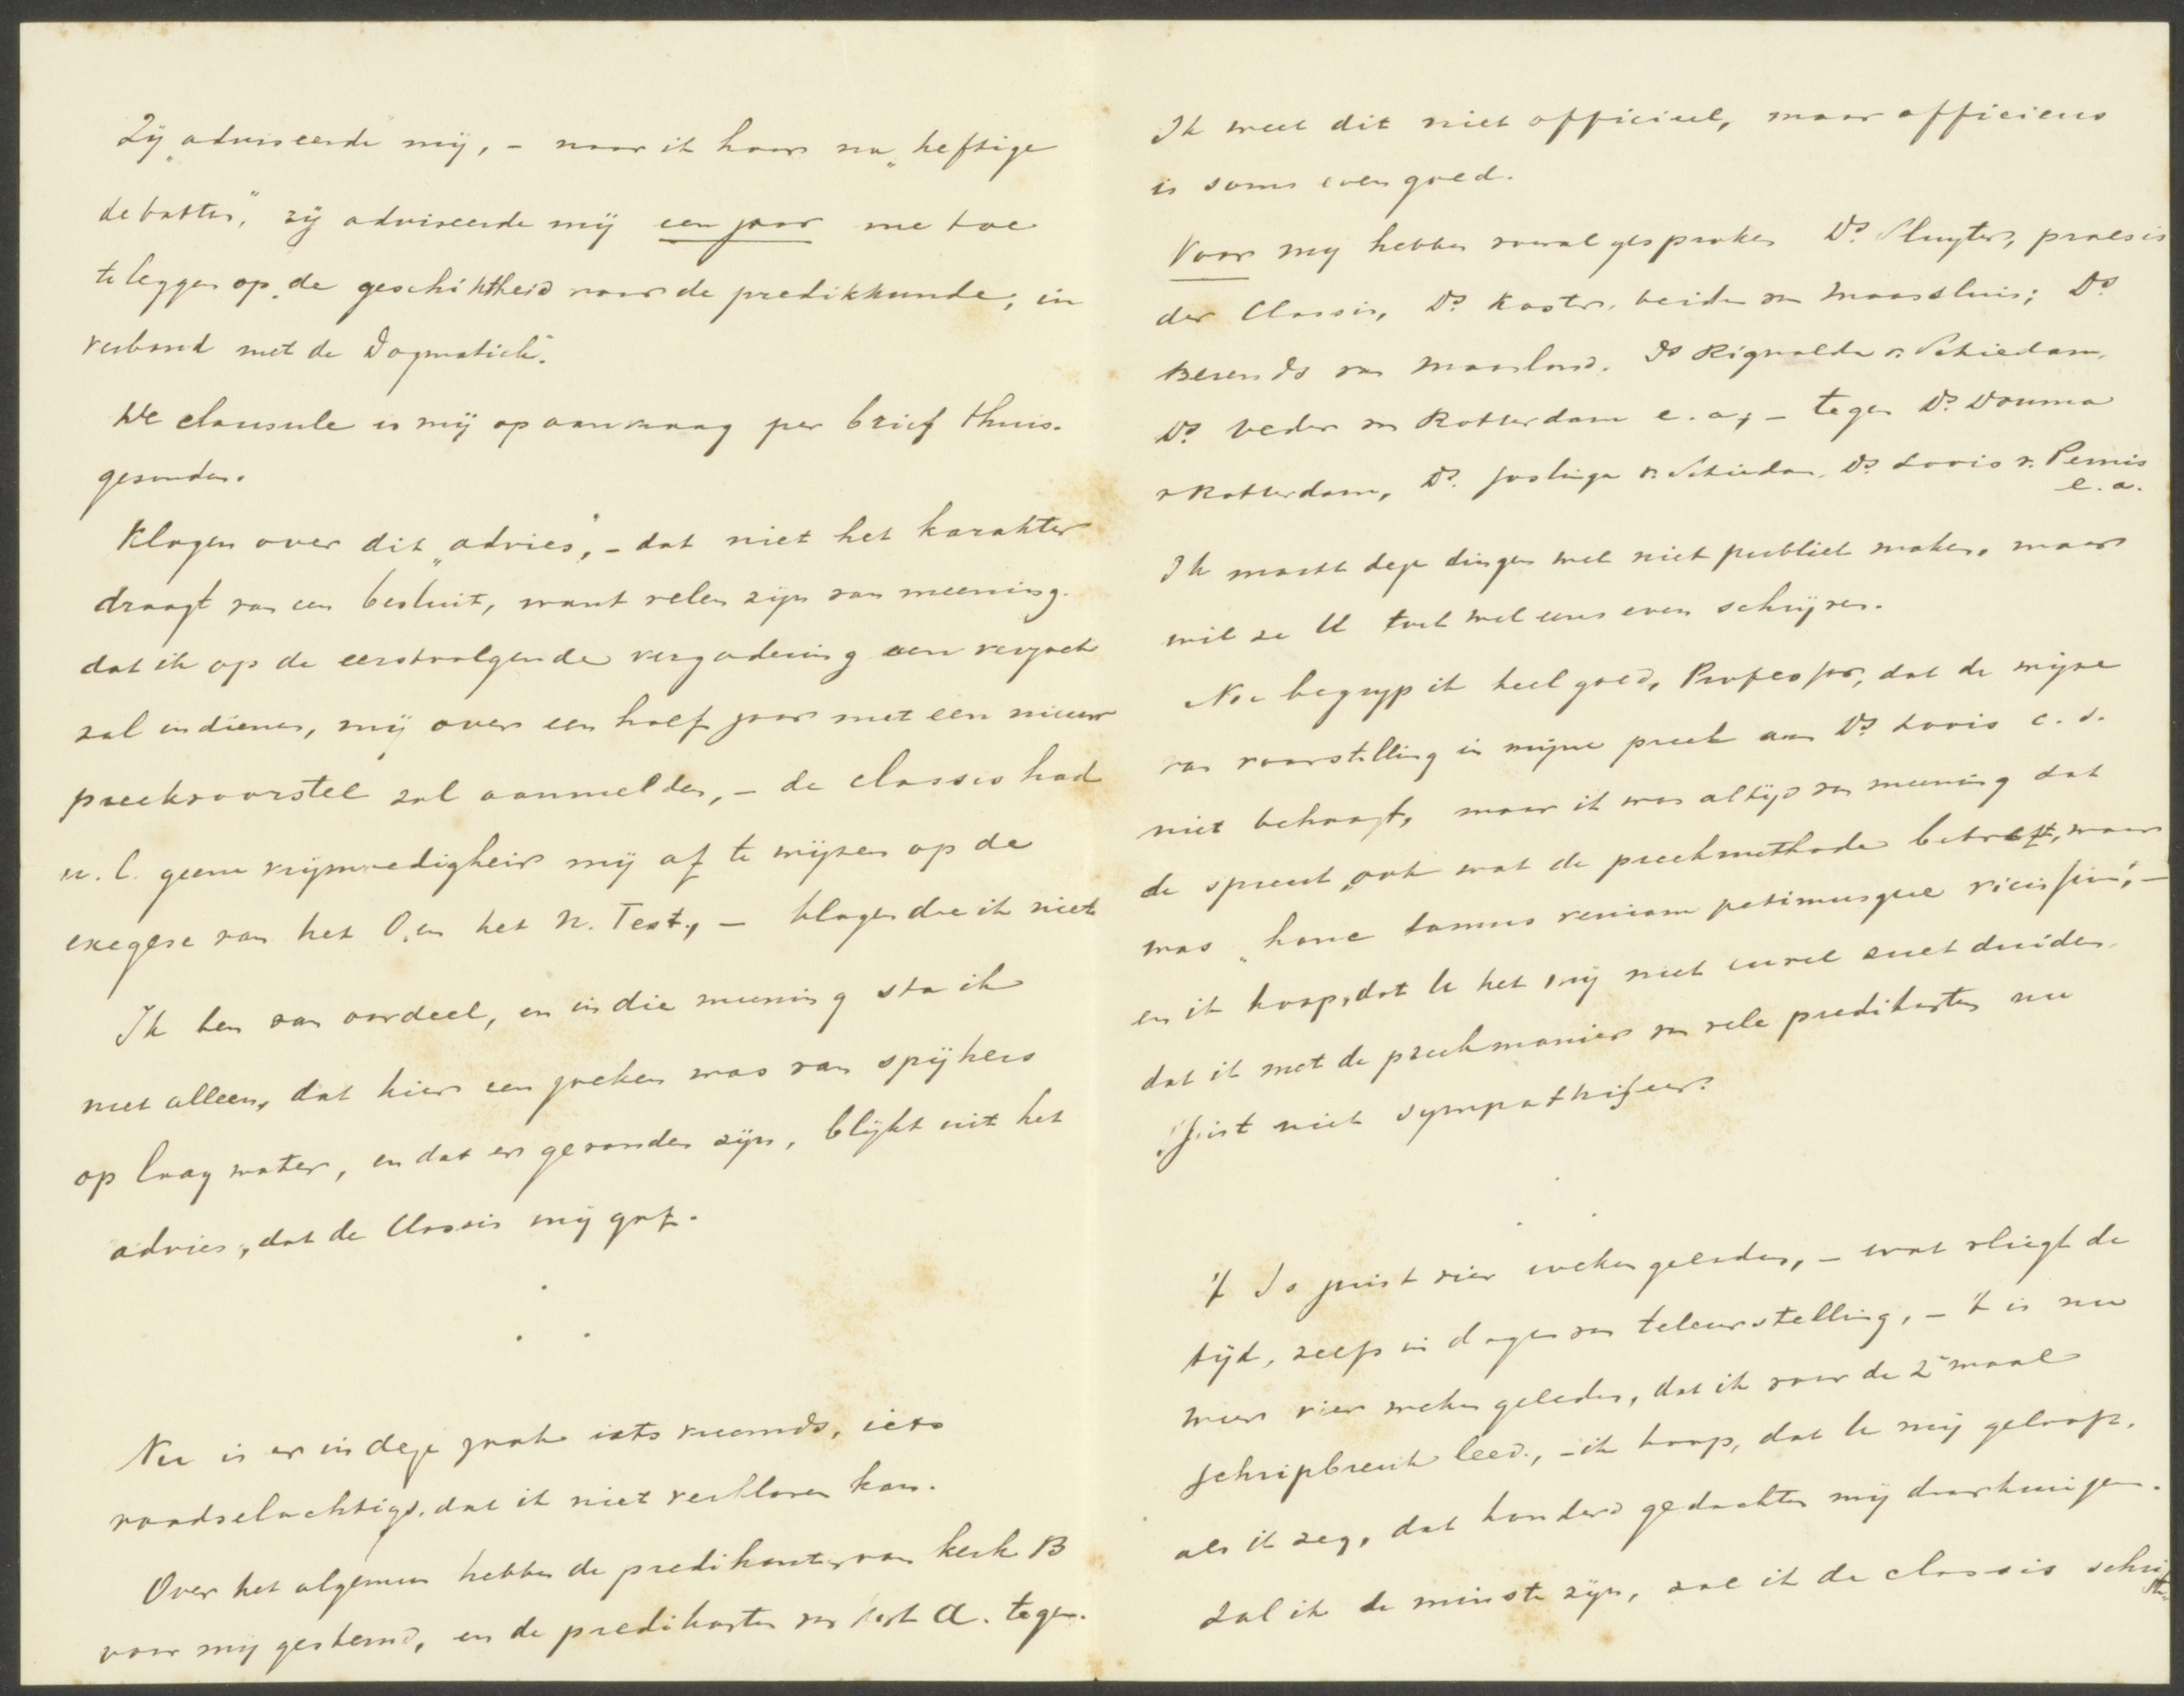 Zij „adviseerde mij, – naar ik hoor na „heftige
debatten", zij adviseerde mij een jaar me toe
te leggen op „de geschiktheid voor de predikkunde, in
verband met de Dogmatiek".
De clausule is mij op aanvraag per brief thuis-
gezonden.
Klagen over dit „advies", – dat niet het karakter
draagt van een besluit, want velen zijn van meening
dat ik op de eerstvolgende vergadering een verzoek
zal indienen, mij over een half jaar met een nieuw
preekvoorstel zal aanmelden, – de classis had
n.l. geene vrijmoedigheid mij af te wijzen op de
exegese van het O. en het N. Test., – klagen doe ik niet
Ik ben van oordeel, en in die meening sta ik
niet alleen, dat hier een zoeken was van spijkers
op laag water, en dat er gevonden zijn, blijkt uit het
advies, dat de Classis mij gaf.
Nu is er in deze zaak iets vreemds, iets
raadselachtigs, dat ik niet verklaren kan.
Over het algemeen hebben de predikanten van kerk B
voor mij gestemd, en de predikanten van kerk A. tegen.
Ik weet dit niet officieel, maar officieus
is soms even goed.
Voor mij hebben vooral gesproken Ds. Sluyter, praeses
der Classis, Ds. Koster, beiden van Maassluis; Ds.
Berends van Maasland, Ds Rignalda v. Schiedam,
Ds. Veder van Rotterdam e.a; – tegen Ds. Douma
v Rotterdam, Ds. Joslinga v. Schiedam, Ds. Loois v. Pernis
e.a.
Ik mocht deze dingen wel niet publiek maken, maar
wil ze U toch wel eens even schrijven.
Nu begrijp ik heel goed, Professor, dat de wijze
van voorstelling in mijne preek aan Ds Loois c.s.
niet behaagt, maar ik was altijd van meening dat
de spreuk „ook wat de preekmethode betreft, waar
was „hanc damus veniam petimusque vicissim", –
en ik hoop, dat U het mij niet euvel zult duiden
dat ik met de preekmanier van vele predikanten nu
juist niet sympathiseer.
't Is juist vier weken geleden, – wat vliegt de
tijd, zelfs in dagen van teleurstelling, – 't is nu
weer vier weken geleden, dat ik voor de 2e maal
schipbreuk leed, – ik hoop, dat U mij gelooft,
als ik zeg, dat honderd gedachten mij doorkruisen.
Zal ik de minste zijn, zal ik de classis